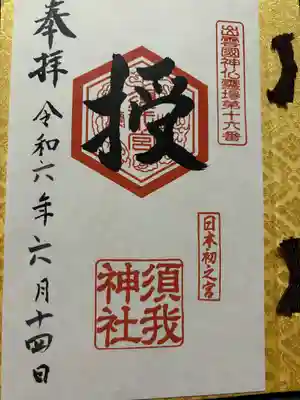 出雲國神仏霊場第十六番
授
日本初之宮
須我
神社
奉拝
令和六年六月十四日